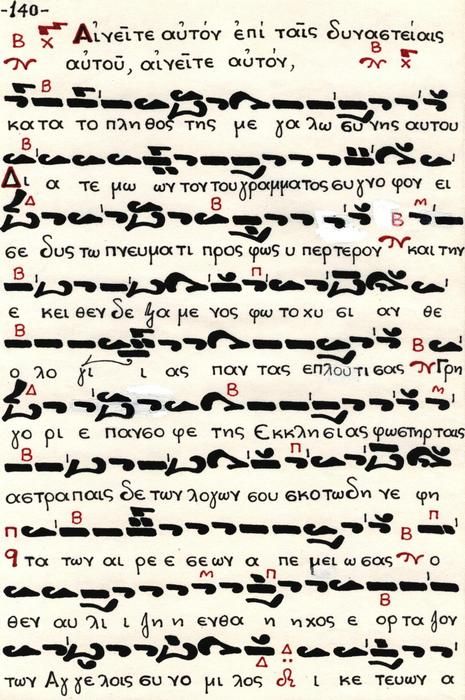 -140-
Αἰνεῖτε αὐτόν ἐπί ταῖς δυναστείαις
αὐτοῦ, αἰνεῖτε αὐτόν,
κατα το πληθος της με γα λω συ νης αυτου
Δι α τε μω ων τον του γραμματος συ γνο φον ει
σε δυς τω πνευμα τι προς φως υ περτερον και την
ε κει θεν δε ξα με νος φω το χυ σι αν θε
ο λο γι ι ας παν τας επλουτι σας Γρη
γο ρι ε πανσο φε της Εκκλησιας φωστηρ ταις
αστραπαις δε των λογων σου σκοτωδη νε φη
τα των αι ρε ε σεων α πε μει ω σας ο
θεν αυ λι ι ζη η ενθα η ηχος ε ορ τα ζον
των Αγ γε λοις συ νο μι λος ι κε τευων α